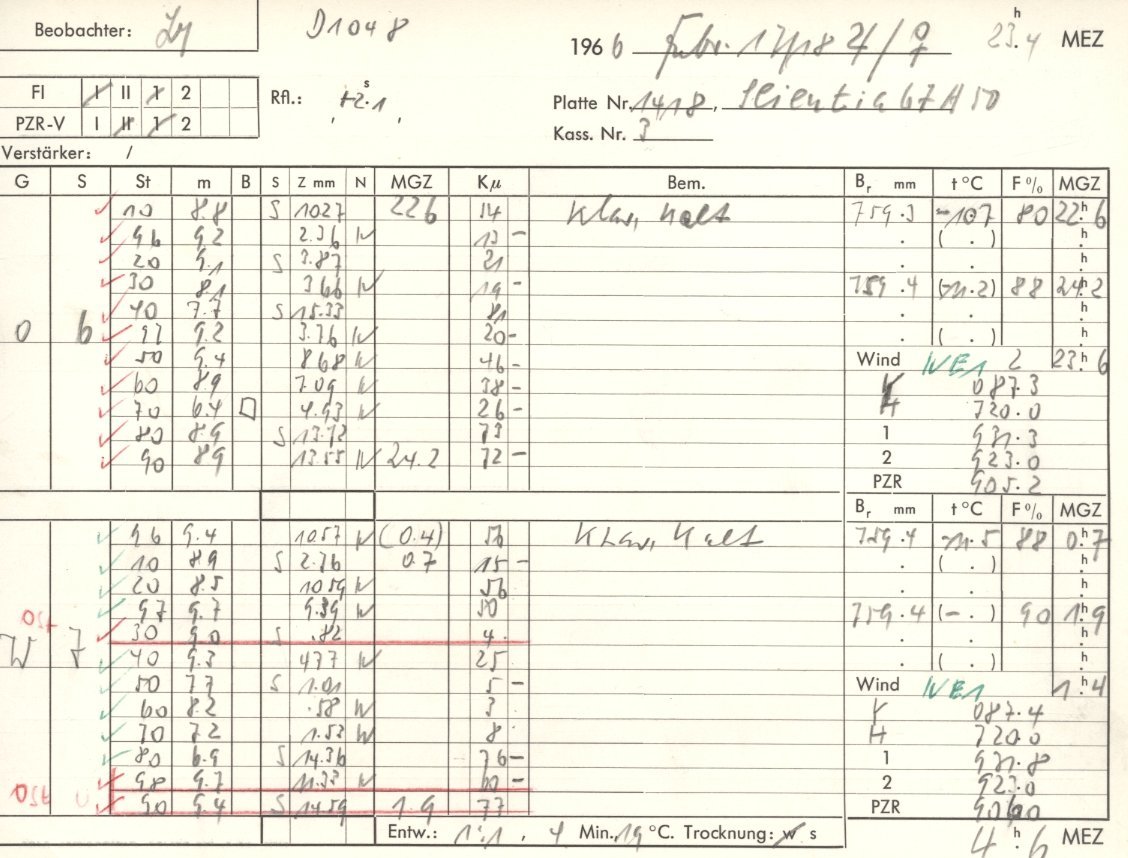 Beobachter: D1048 1966 Febr. 17/18 23.4 h MEZ
FI I II 1 2 Rfl.: +2.1 s
Platte Nr. 1418, Scientia 67 A 50
PZR-V I II 1 2
Kass. Nr. 3
Verstärker: /
G S St m B S Z mm N MGZ Kμ Bem. Br mm t °C F % MGZ
10 8.8 S 1027 226 14 Klar, kalt 759.3 -107 80 22h6
96 9.2 2.36 N 13 - ( . ) h
20 9.1 S 3.87 21 . . h
30 8.1 3.66 N 19 - 759.4 (-11.2) 88 24h2
40 7.7 S 15.33 81 . . h
O 6 97 9.2 3.76 N 20 - . ( . ) h
50 9.4 8.68 N 46 - Wind NE1 2 23h6
60 8.9 7.09 N 38 - 087.3
70 6.4 4.93 N 26 - H 720.0
80 8.9 S 13.72 73 1 931.3
90 8.9 13.55 N 24.2 72 - 2 923.0
PZR 905.2
Br mm t °C F % MGZ
96 9.4 1057 N (0.4) 56 Klar, kalt 759.4 -11.5 88 0h7
10 8.9 S 2.76 0.7 15 - . ( . ) h
20 8.5 1059 N 56 . . h
97 9.7 9.39 N 50 759.4 (- . ) 90 1h9
30 9.0 S .82 4 . . h
W 7 40 9.3 477 N 25 . ( . ) h
50 7.7 S 1.01 5 - Wind NE1 1h4
60 8.2 .58 N 3 087.4
70 7.2 1.53 N 8 H 7200
80 6.9 S 14.36 76 - 1 931.8
98 9.7 11.33 N 60 - 2 923.0
90 9.4 S 14.59 1.9 77 PZR
Entw.: 1:1, 4 Min., 19 °C. Trocknung: w s 4h6 MEZ